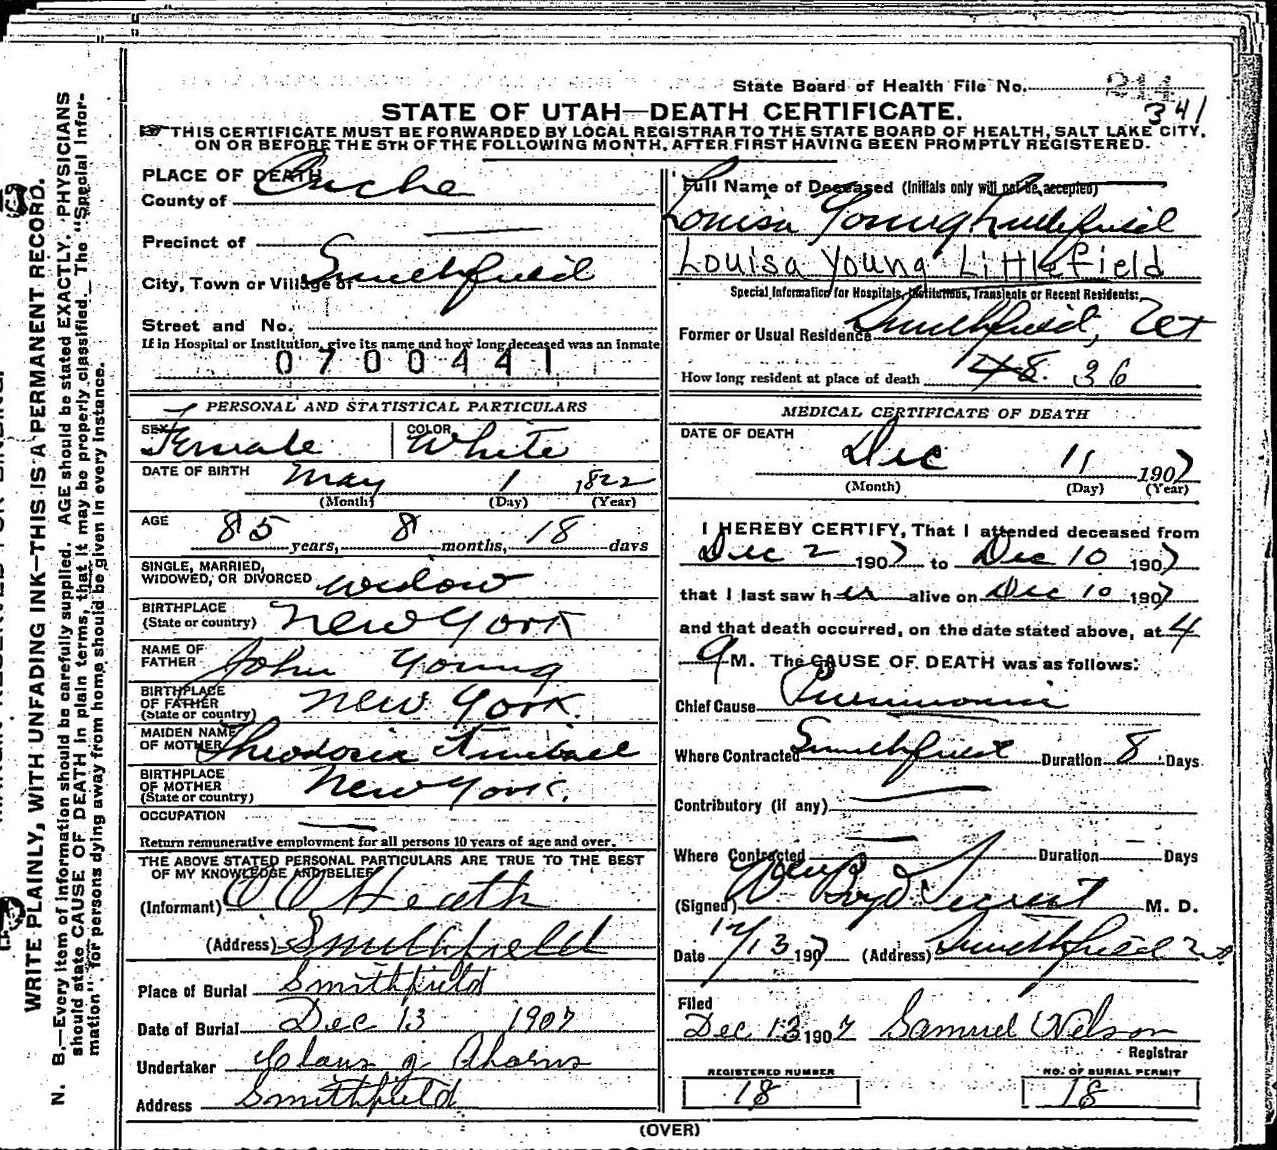 WRITE PLAINLY, WITH UNFADING INK—THIS IS A PERMANENT RECORD.
N. B.—Every item of information should be carefully supplied. AGE should be stated EXACTLY. PHYSICIANS
should state CAUSE OF DEATH in plain terms, that it may be properly classified. The "Special Infor-
mation" for persons dying away from home should be given in every instance.
State Board of Health File No. 214
341
STATE OF UTAH—DEATH CERTIFICATE.
THIS CERTIFICATE MUST BE FORWARDED BY LOCAL REGISTRAR TO THE STATE BOARD OF HEALTH, SALT LAKE CITY,
ON OR BEFORE THE 5TH OF THE FOLLOWING MONTH, AFTER FIRST HAVING BEEN PROMPTLY REGISTERED.
PLACE OF DEATH
County of Cache
Precinct of
City, Town or Village of Smithfield
Street and No.
If in Hospital or Institution, give its name and how long deceased was an inmate
0700441
PERSONAL AND STATISTICAL PARTICULARS
SEX Female COLOR White
DATE OF BIRTH May 1 1822
(Month) (Day) (Year)
AGE 85 years, 8 months, 18 days
SINGLE, MARRIED,
WIDOWED, OR DIVORCED widow
BIRTHPLACE
(State or country) New York
NAME OF
FATHER John Young
BIRTHPLACE
OF FATHER New York.
(State or country)
MAIDEN NAME
OF MOTHER Theodosia Kimball
BIRTHPLACE
OF MOTHER New York.
(State or country)
OCCUPATION
Return remunerative employment for all persons 10 years of age and over.
THE ABOVE STATED PERSONAL PARTICULARS ARE TRUE TO THE BEST
OF MY KNOWLEDGE AND BELIEF
(Informant) O O Heath
(Address) Smithfield
Place of Burial Smithfield
Date of Burial Dec 13 1907
Undertaker
Address Smithfield
Full Name of Deceased (Initials only will not be accepted)
Louisa Young Littlefield
Louisa Young Littlefield
Special Information for Hospitals, Institutions, Transients or Recent Residents:
Former or Usual Residence Smithfield, Ut
How long resident at place of death 48. 36
MEDICAL CERTIFICATE OF DEATH
DATE OF DEATH
Dec 11 1907
(Month) (Day) (Year)
I HEREBY CERTIFY, That I attended deceased from
Dec 2 1907 to Dec 10 1907
that I last saw her alive on Dec 10 1907
and that death occurred, on the date stated above, at 4
M. The CAUSE OF DEATH was as follows:
Chief Cause Pneumonia
Where Contracted Smithfield Duration 8 Days
Contributory (if any)
Where Contracted Duration Days
(Signed) M. D.
Date 12/13 1907 (Address) Smithfield Ut
Filed
Dec 13 1907 Samuel Nelson
Registrar
REGISTERED NUMBER
18
NO. OF BURIAL PERMIT
18
(OVER)